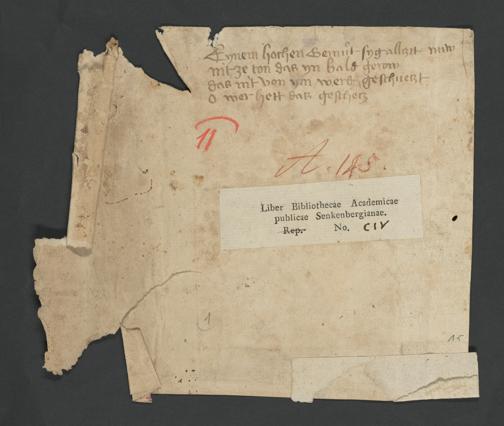 Eynem hochen Gemut syg allzit nüw
nit ze ton das yn bald gerow
das nit von ym werd geschuezt
o wer hett das geschetz
11
A. 145.
Liber Bibliothecae Academicae
publicae Senkenbergianae.
Rep. No. CIV
1
15